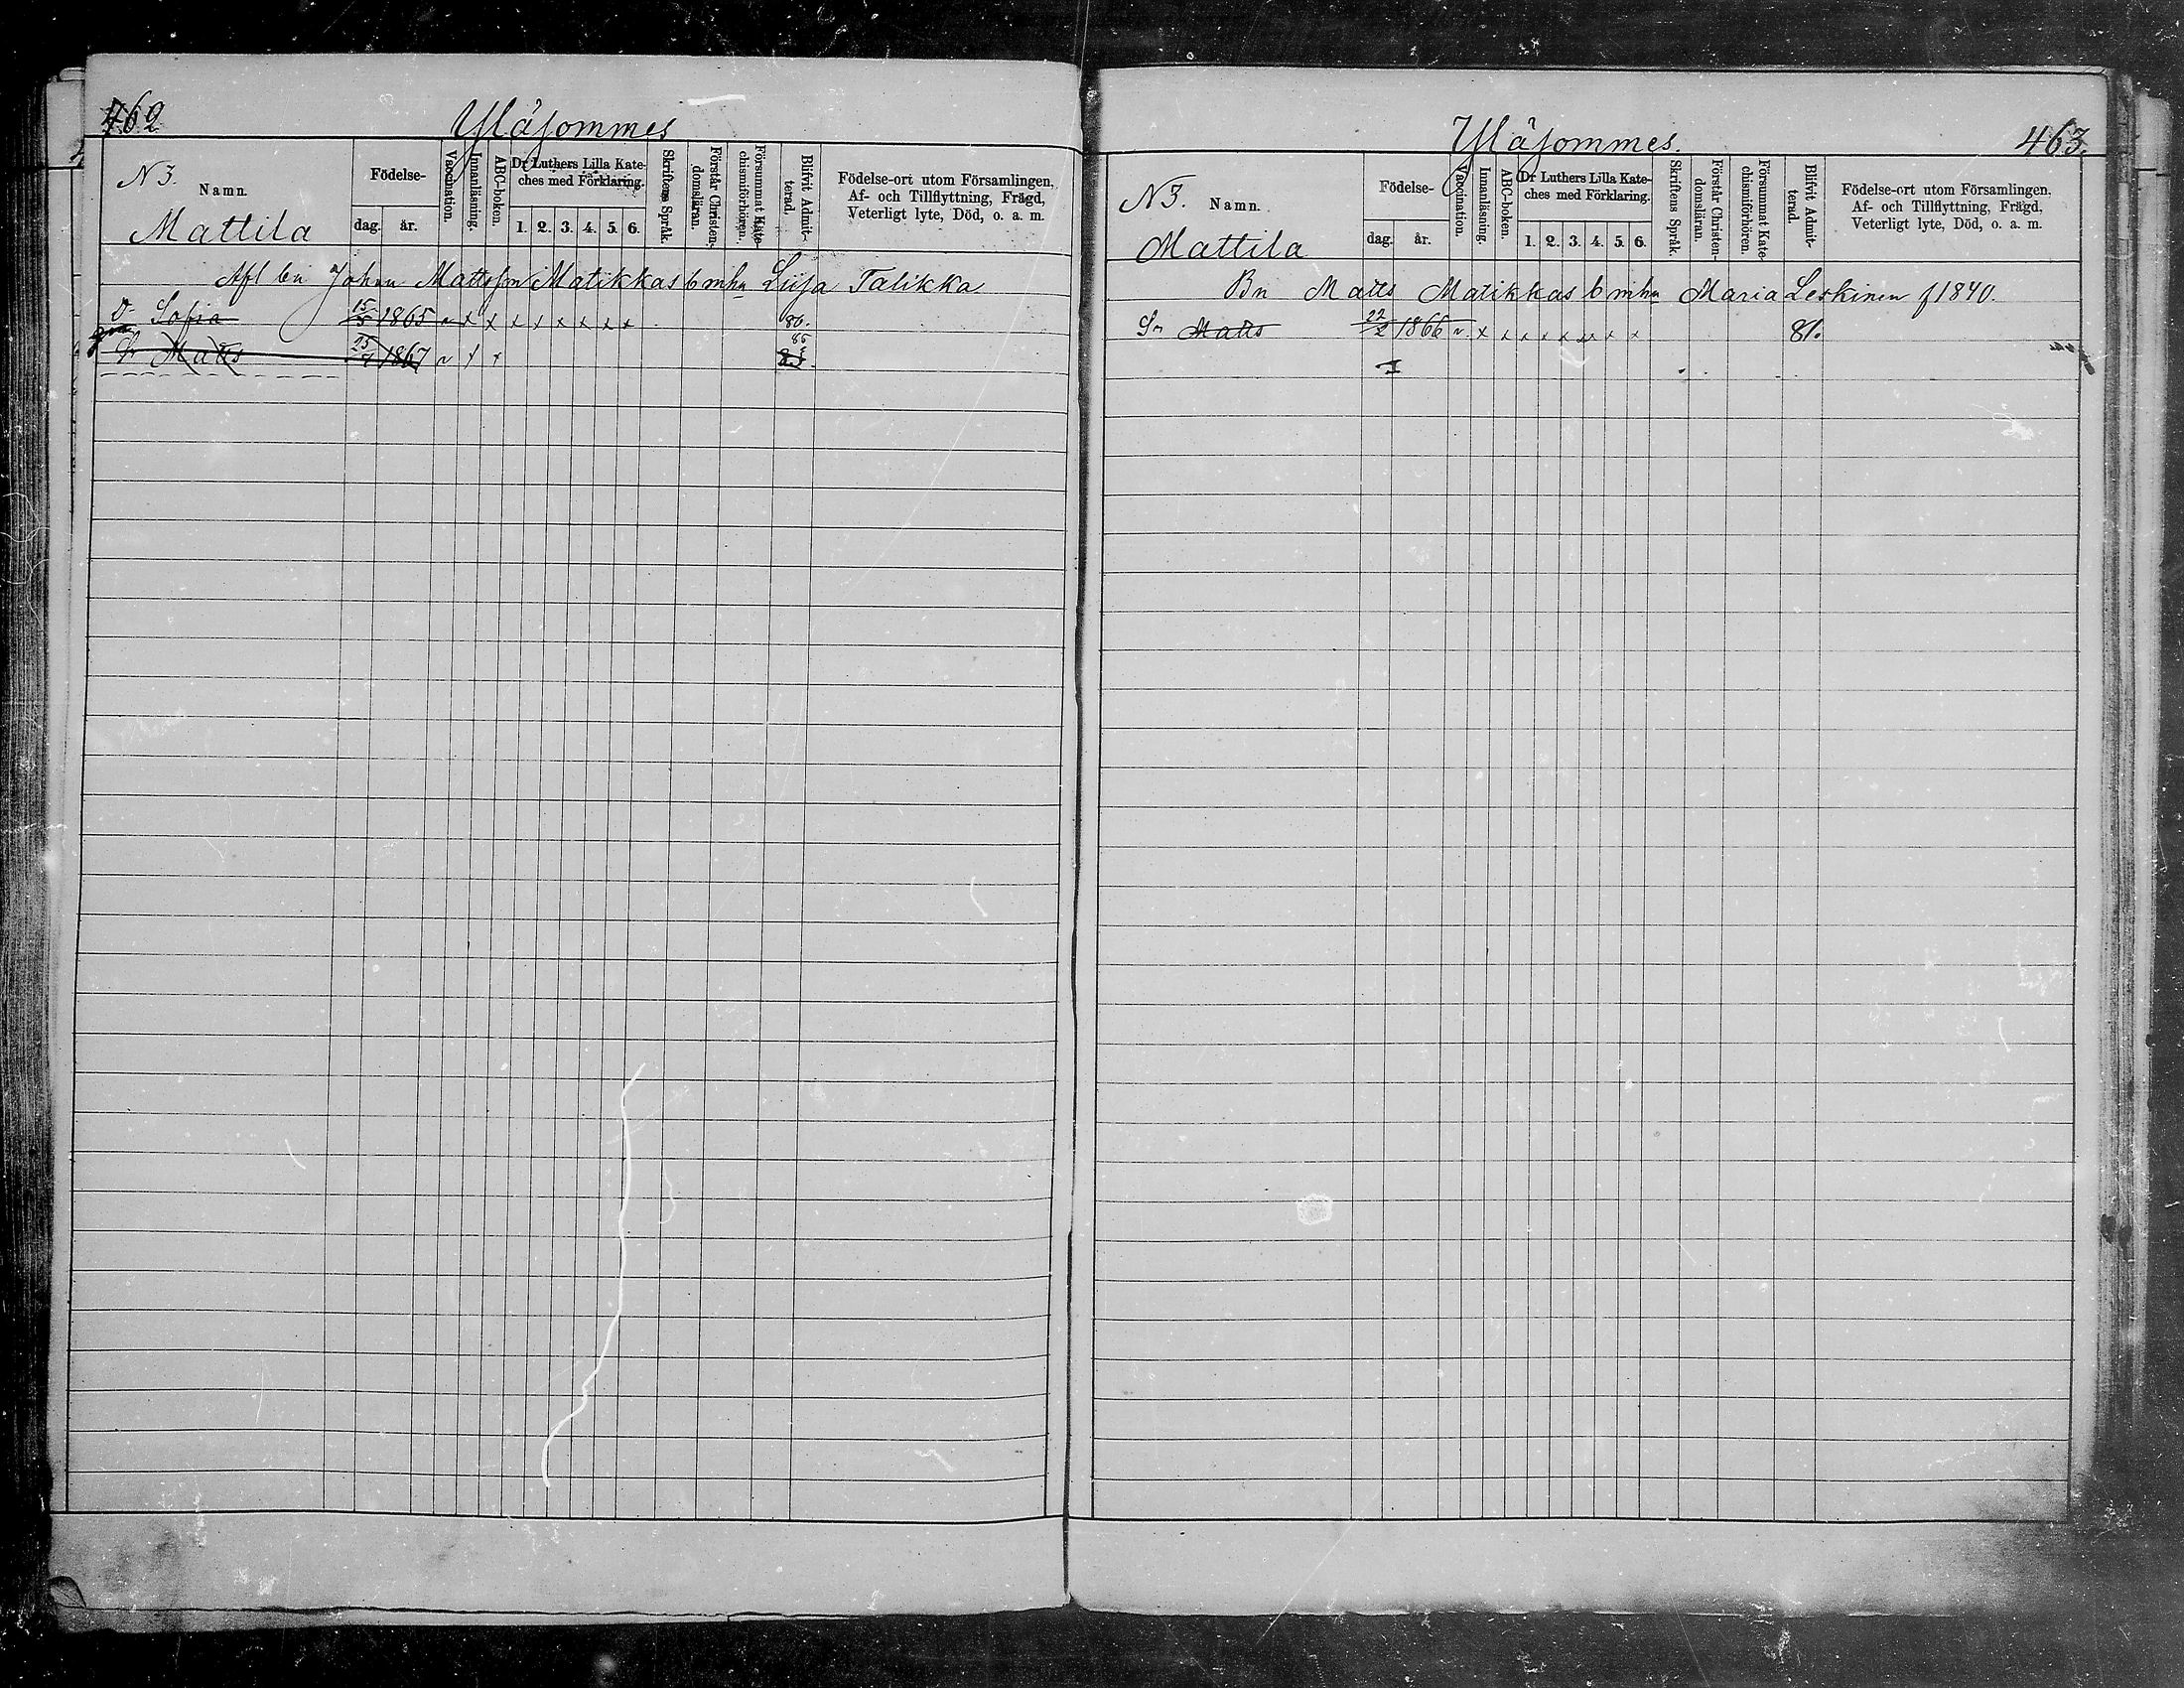 462
Yläsommes
N 3. Namn.
Mattila
Födelse-
dag. år.
Vaccination.
Innanläsning.
ABC-boken.
Dr Luthers Lilla Kate-
ches med Förklaring.
1. 2. 3. 4. 5. 6.
Skriftens Språk.
Förstår Christen-
domsläran.
Försummat Kate-
chismiförhören.
Blifvit Admit-
terad.
Födelse-ort utom Församlingen,
Af- och Tillflyttning, Frägd,
Veterligt lyte, Död, o. a. m.
Afl bn Johan Mattsson Matikkas b m hu Liisa Talikka
D. Sofia 15/5 1865 v x x x x x x x x 80.
Sr Matts 1867 v x x 86
463.
Yläsommes.
N 3. Namn.
Mattila
Födelse-
dag. år.
Vaccination.
Innanläsning.
ABC-boken.
Dr Luthers Lilla Kate-
ches med Förklaring.
1. 2. 3. 4. 5. 6.
Skriftens Språk.
Förstår Christen-
domsläran.
Försummat Kate-
chismiförhören.
Blifvit Admit-
terad.
Födelse-ort utom Församlingen,
Af- och Tillflyttning, Frägd,
Veterligt lyte, Död, o. a. m.
Bn Matts Matikkas b m hu Maria Leskinen f 1840.
Sr Matts 22/2 1866 v. x x x x x x x x 81.